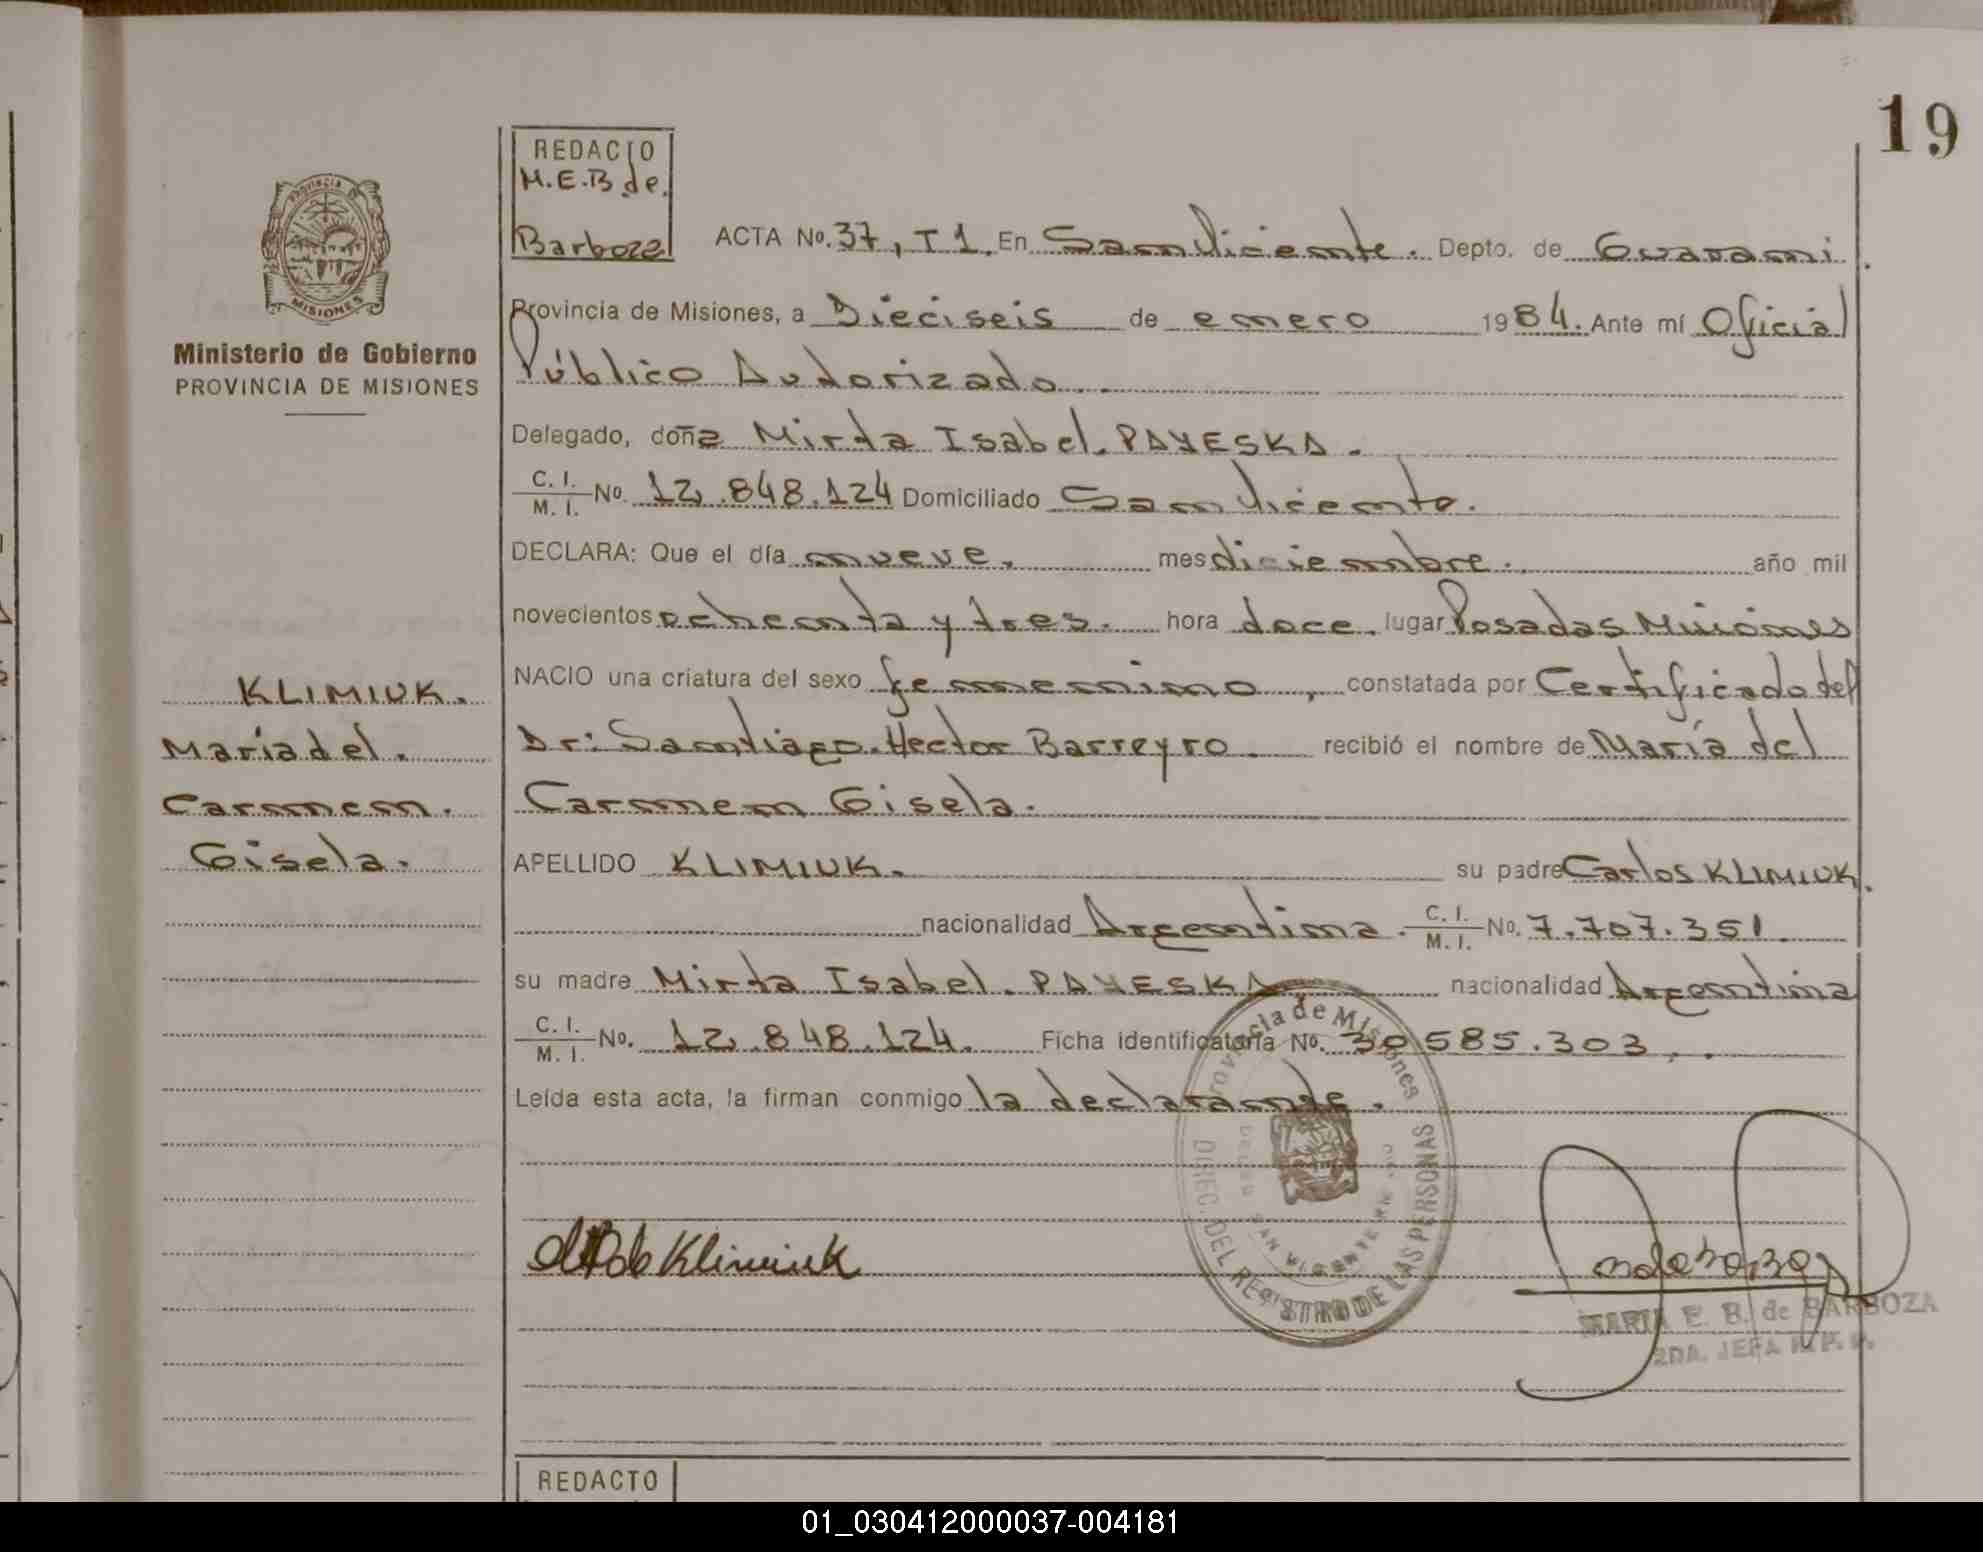 19
REDACTO
M.E.B. de.
Barboza
PROVINCIA
MISIONES
Ministerio de Gobierno
PROVINCIA DE MISIONES
ACTA No. 37, T 1. En San Vicente. Depto. de Guarani.
Provincia de Misiones, a Dieciseis de enero 1984. Ante mí Oficial
Público Autorizado.
Delegado, doña Mirta Isabel. PAYESKA.
C. I.
M. I. No. 12.848.124 Domiciliado San Vicente.
DECLARA: Que el día nueve. mes diciembre. año mil
novecientos ochenta y tres. hora doce. lugar Posadas Misiones
NACIO una criatura del sexo femenino, constatada por Certificado del
Dr: Santiago. Hector Barreyro. recibió el nombre de María del
Carmen Gisela.
APELLIDO KLIMIUK. su padre Carlos KLIMIUK.
nacionalidad Argentina. C. I.
M. I. No. 7.707.351.
su madre Mirta Isabel. PAYESKA nacionalidad Argentina
C. I.
M. I. No. 12.848.124. Ficha identificatoria No. 30585.303,.
Leída esta acta, la firman conmigo la declarante.
KLIMIUK.
María del.
Carmen.
Gisela.
Provincia de Misiones
DIREC. DEL REGISTRO DE LAS PERSONAS
SAN VICENTE
de Klimiuk
MARIA E. B. de BARBOZA
2DA. JEFA R. P. P.
REDACTO
01_030412000037-004181